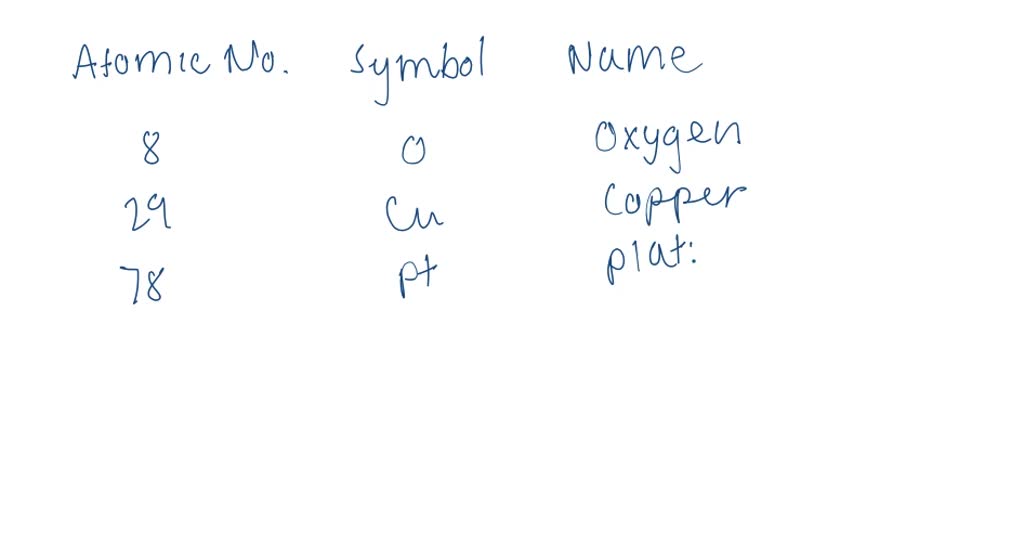 Atomic No. Symbol Name
8 O Oxygen
29 Cu Copper
78 pt plat: